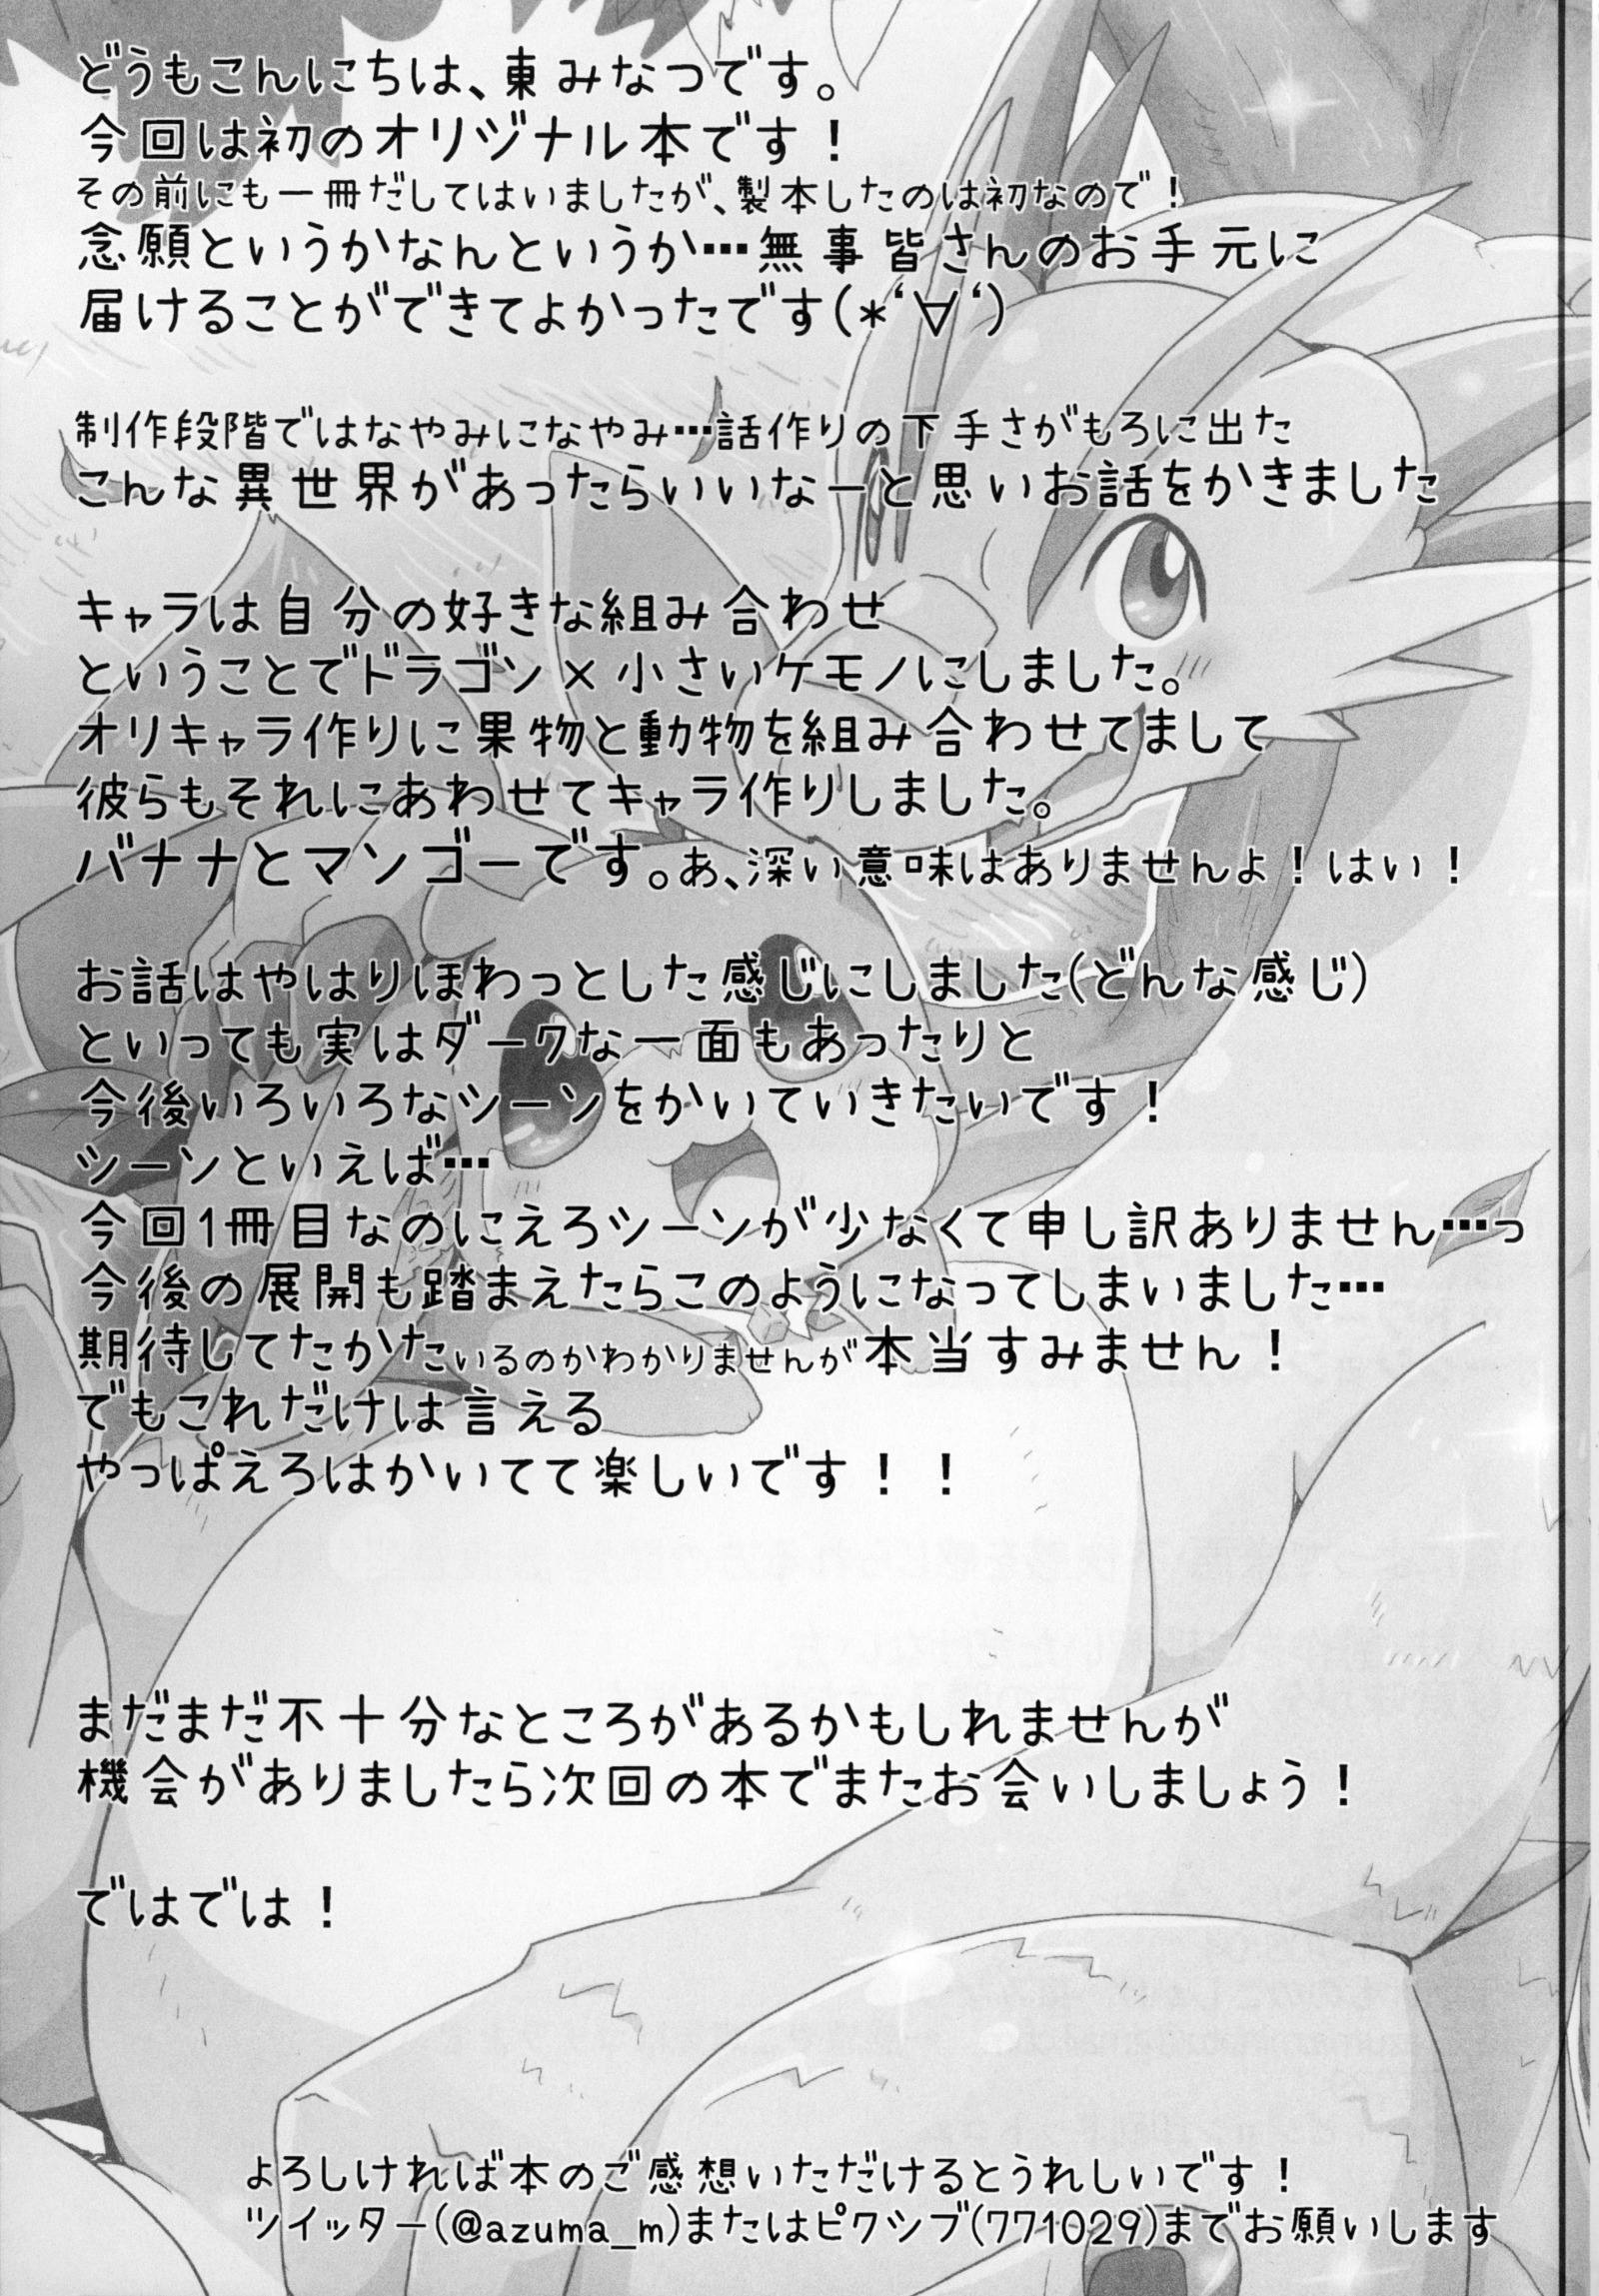 どうもこんにちは、東みなつです。
今回は初のオリジナル本です！
その前にも一冊だしてはいましたが、製本したのは初なので！
念願というかなんというか…無事皆さんのお手元に
届けることができてよかったです(*‘∀‘)
制作段階ではなやみになやみ…話作りの下手さがもろに出た
こんな異世界があったらいいなーと思いお話をかきました
キャラは自分の好きな組み合わせ
ということでドラゴン×小さいケモノにしました。
オリキャラ作りに果物と動物を組み合わせてまして
彼らもそれにあわせてキャラ作りしました。
バナナとマンゴーです。あ、深い意味はありませんよ！はい！
お話はやはりほわっとした感じにしました(どんな感じ)
といっても実はダークな一面もあったりと
今後いろいろなシーンをかいていきたいです！
シーンといえば…
今回1冊目なのにえろシーンが少なくて申し訳ありません…っ
今後の展開も踏まえたらこのようになってしまいました…
期待してたかたいるのかわかりませんが本当すみません！
でもこれだけは言える
やっぱえろはかいてて楽しいです！！
まだまだ不十分なところがあるかもしれませんが
機会がありましたら次回の本でまたお会いしましょう！
ではでは！
よろしければ本のご感想いただけるとうれしいです！
ツイッター(@azuma_m)またはピクシブ(771029)までお願いします